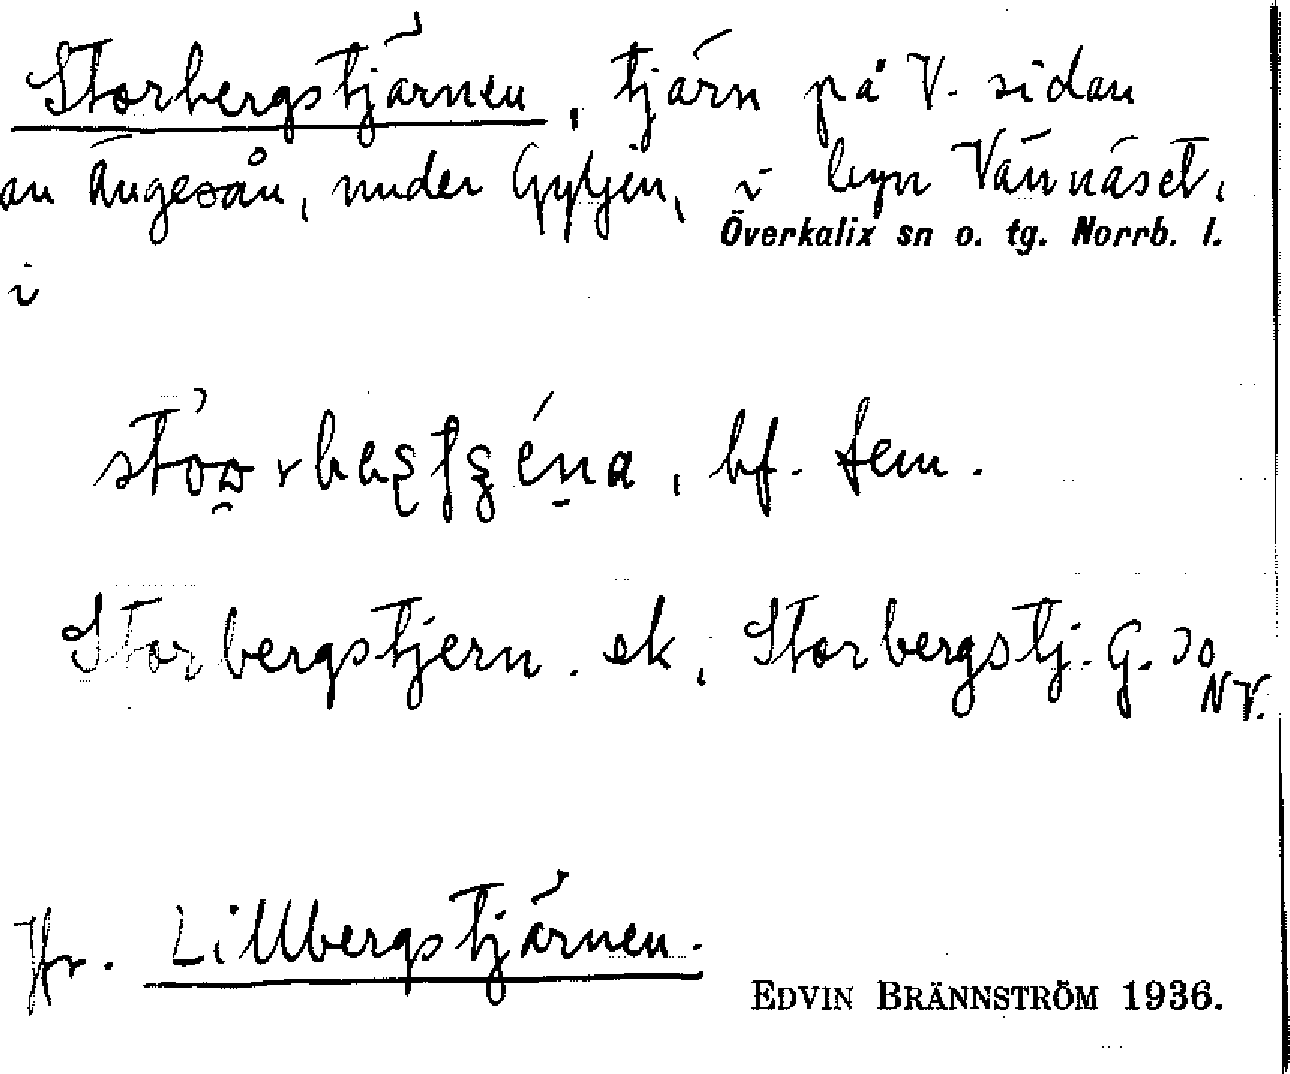 Storbergstjärnen, tjärn på V. sidan
av Ängesån, nuder Gyljen, i byn Vännäset,
Överkalix sn o. tg. Norrb. l.
i
bf. fem.
Storbergstjern. sk, Storbergstj. G. 30
NV.
Jfr. Lillbergstjärnen.
EDVIN BRÄNNSTRÖM 1936.